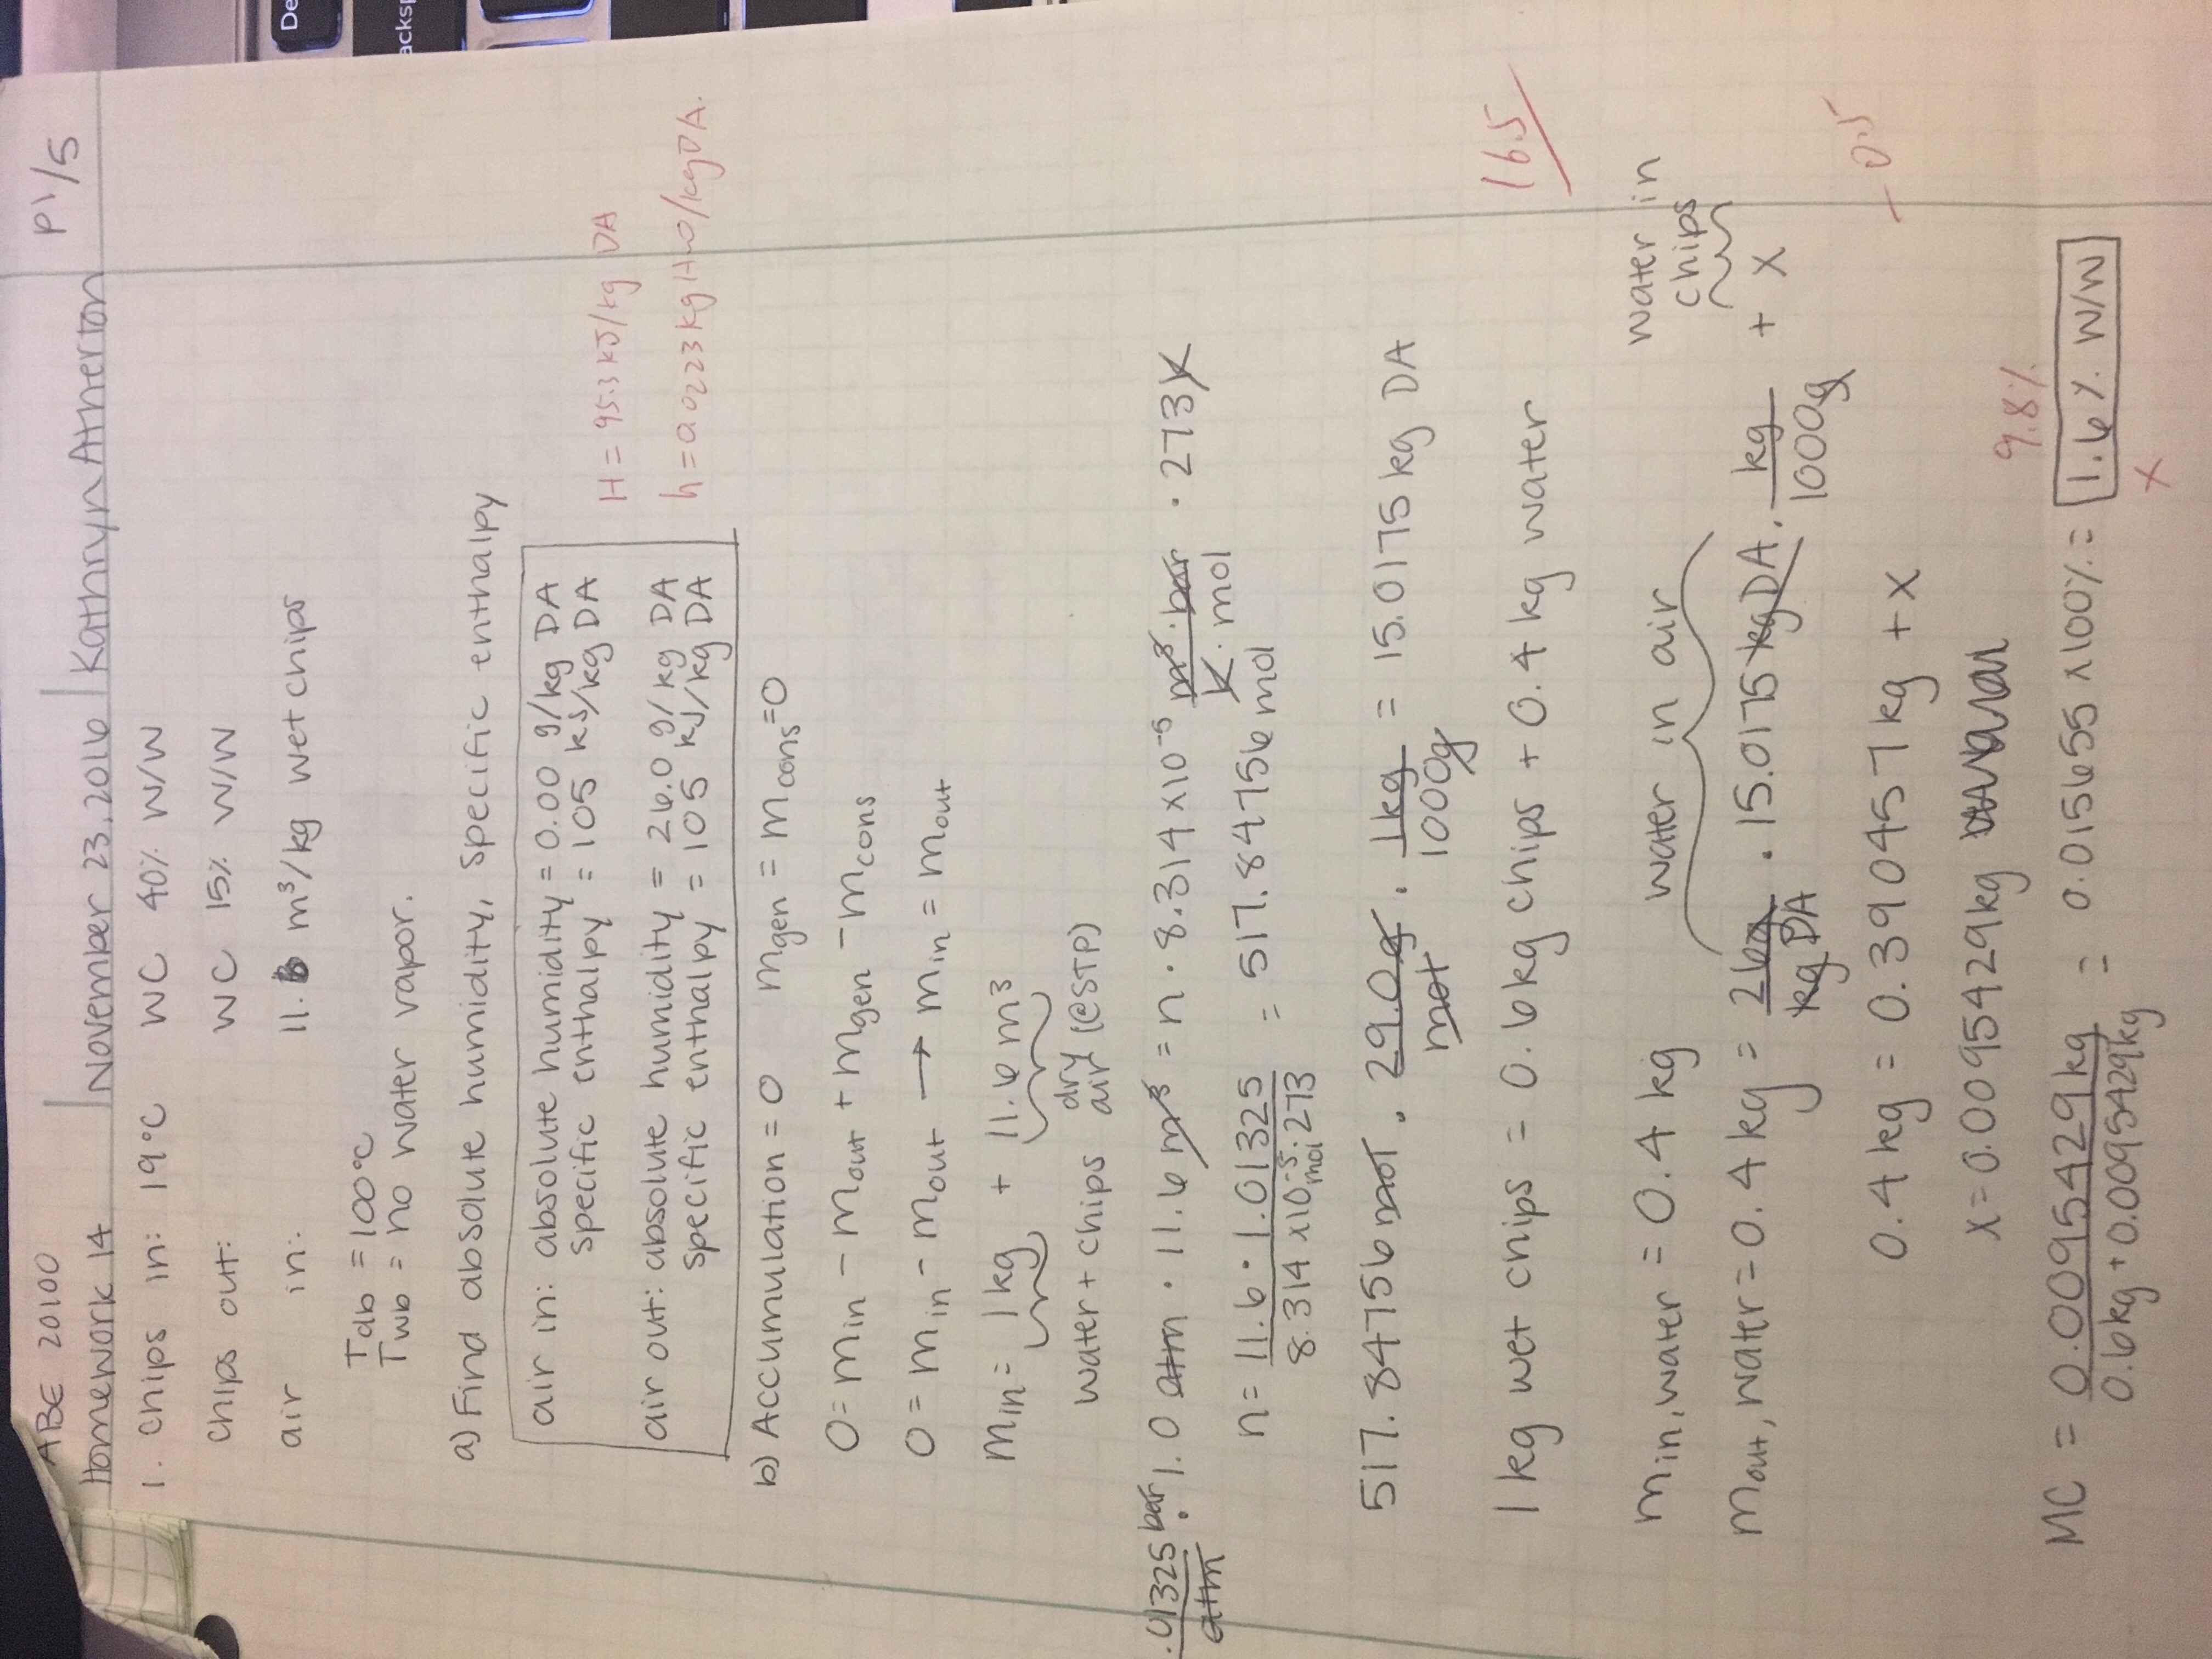 ABE 20100
Homework 14 | November 23, 2016 | Kathryn Atherton
P1/5
1. Chips in: 19°C WC 40% W/W
Chips out: WC 15% W/W
air in: 11.6 m³/kg wet chips
Tdb = 100°C
Twb = no water vapor.
a) Find absolute humidity, specific enthalpy
air in: absolute humidity = 0.00 g/kg DA
specific enthalpy = 105 kJ/kg DA
H = 95.3 kJ/kg DA
air out: absolute humidity = 26.0 g/kg DA
specific enthalpy = 105 kJ/kg DA
h = 0.0223 kg H2O/kg DA.
b) Accumulation = 0 mgen = mcons = 0
0 = min - mout + mgen - mcons
0 = min - mout → min = mout
min = 1 kg + 11.6 m³
water + chips dry air (@STP)
.01325 bar/atm · 1.0 atm · 11.6 m³ = n · 8.314 x10⁻⁵ m³·bar/K·mol · 273K
n = 11.6 · 1.01325 / 8.314 x10⁻⁵ mol · 273 = 517.84756 mol
517.84756 mol · 29.0g/mol · 1kg/1000g = 15.0175 kg DA
1 kg wet chips = 0.6 kg chips + 0.4 kg water
16.5
min, water = 0.4 kg water in air water in chips
mout, water = 0.4 kg = 26g/kg DA · 15.0175 kg DA · kg/1000g + x
0.4 kg = 0.390457 kg + x
- 0.5
x = 0.0095429 kg
9.8%
MC = 0.0095429 kg / 0.6kg + 0.0095429kg = 0.015655 x100% = 1.6% W/W
x